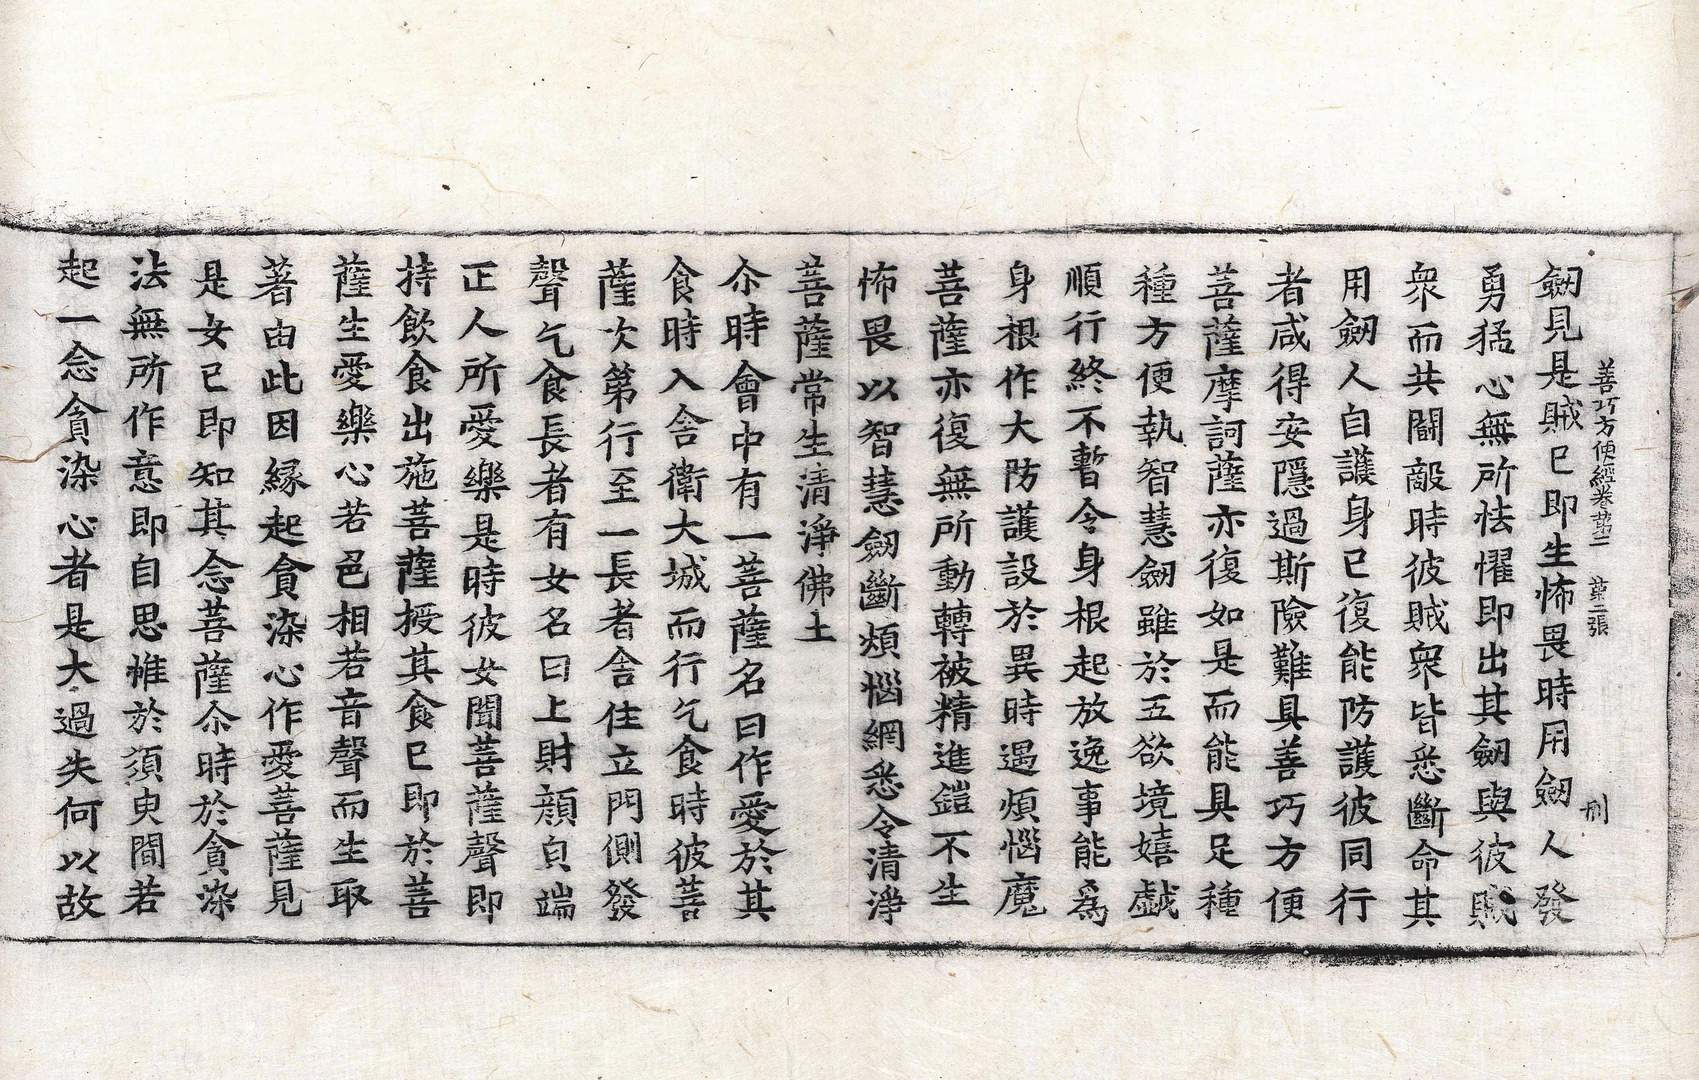 善巧方便經卷第二 第二張 刑
劔見是賊已即生怖畏時用劔人發
勇猛心無所怯懼即出其劔與彼賊
衆而共鬪敵時彼賊衆皆悉斷命其
用劔人自護身已復能防護彼同行
者咸得安隱過斯險難具善巧方便
菩薩摩訶薩亦復如是而能具足種
種方便執智慧劔雖於五欲境嬉戲
順行終不暫令身根起放逸事能爲
身根作大防護設於異時遇煩惱魔
菩薩亦復無所動轉被精進鎧不生
怖畏以智慧劔斷煩惱網悉令清淨
菩薩常生清淨佛土
尒時會中有一菩薩名曰作愛於其
食時入舍衛大城而行乞食時彼菩
薩次第行至一長者舍住立門側發
聲乞食長者有女名曰上財顔皃端
正人所愛樂是時彼女聞菩薩聲即
持飲食出施菩薩授其食已即於菩
薩生愛樂心若色相若音聲而生取
著由此因緣起貪染心作愛菩薩見
是女已即知其念菩薩尒時於貪染
法無所作意即自思惟於須臾間若
起一念貪染心者是大過失何以故